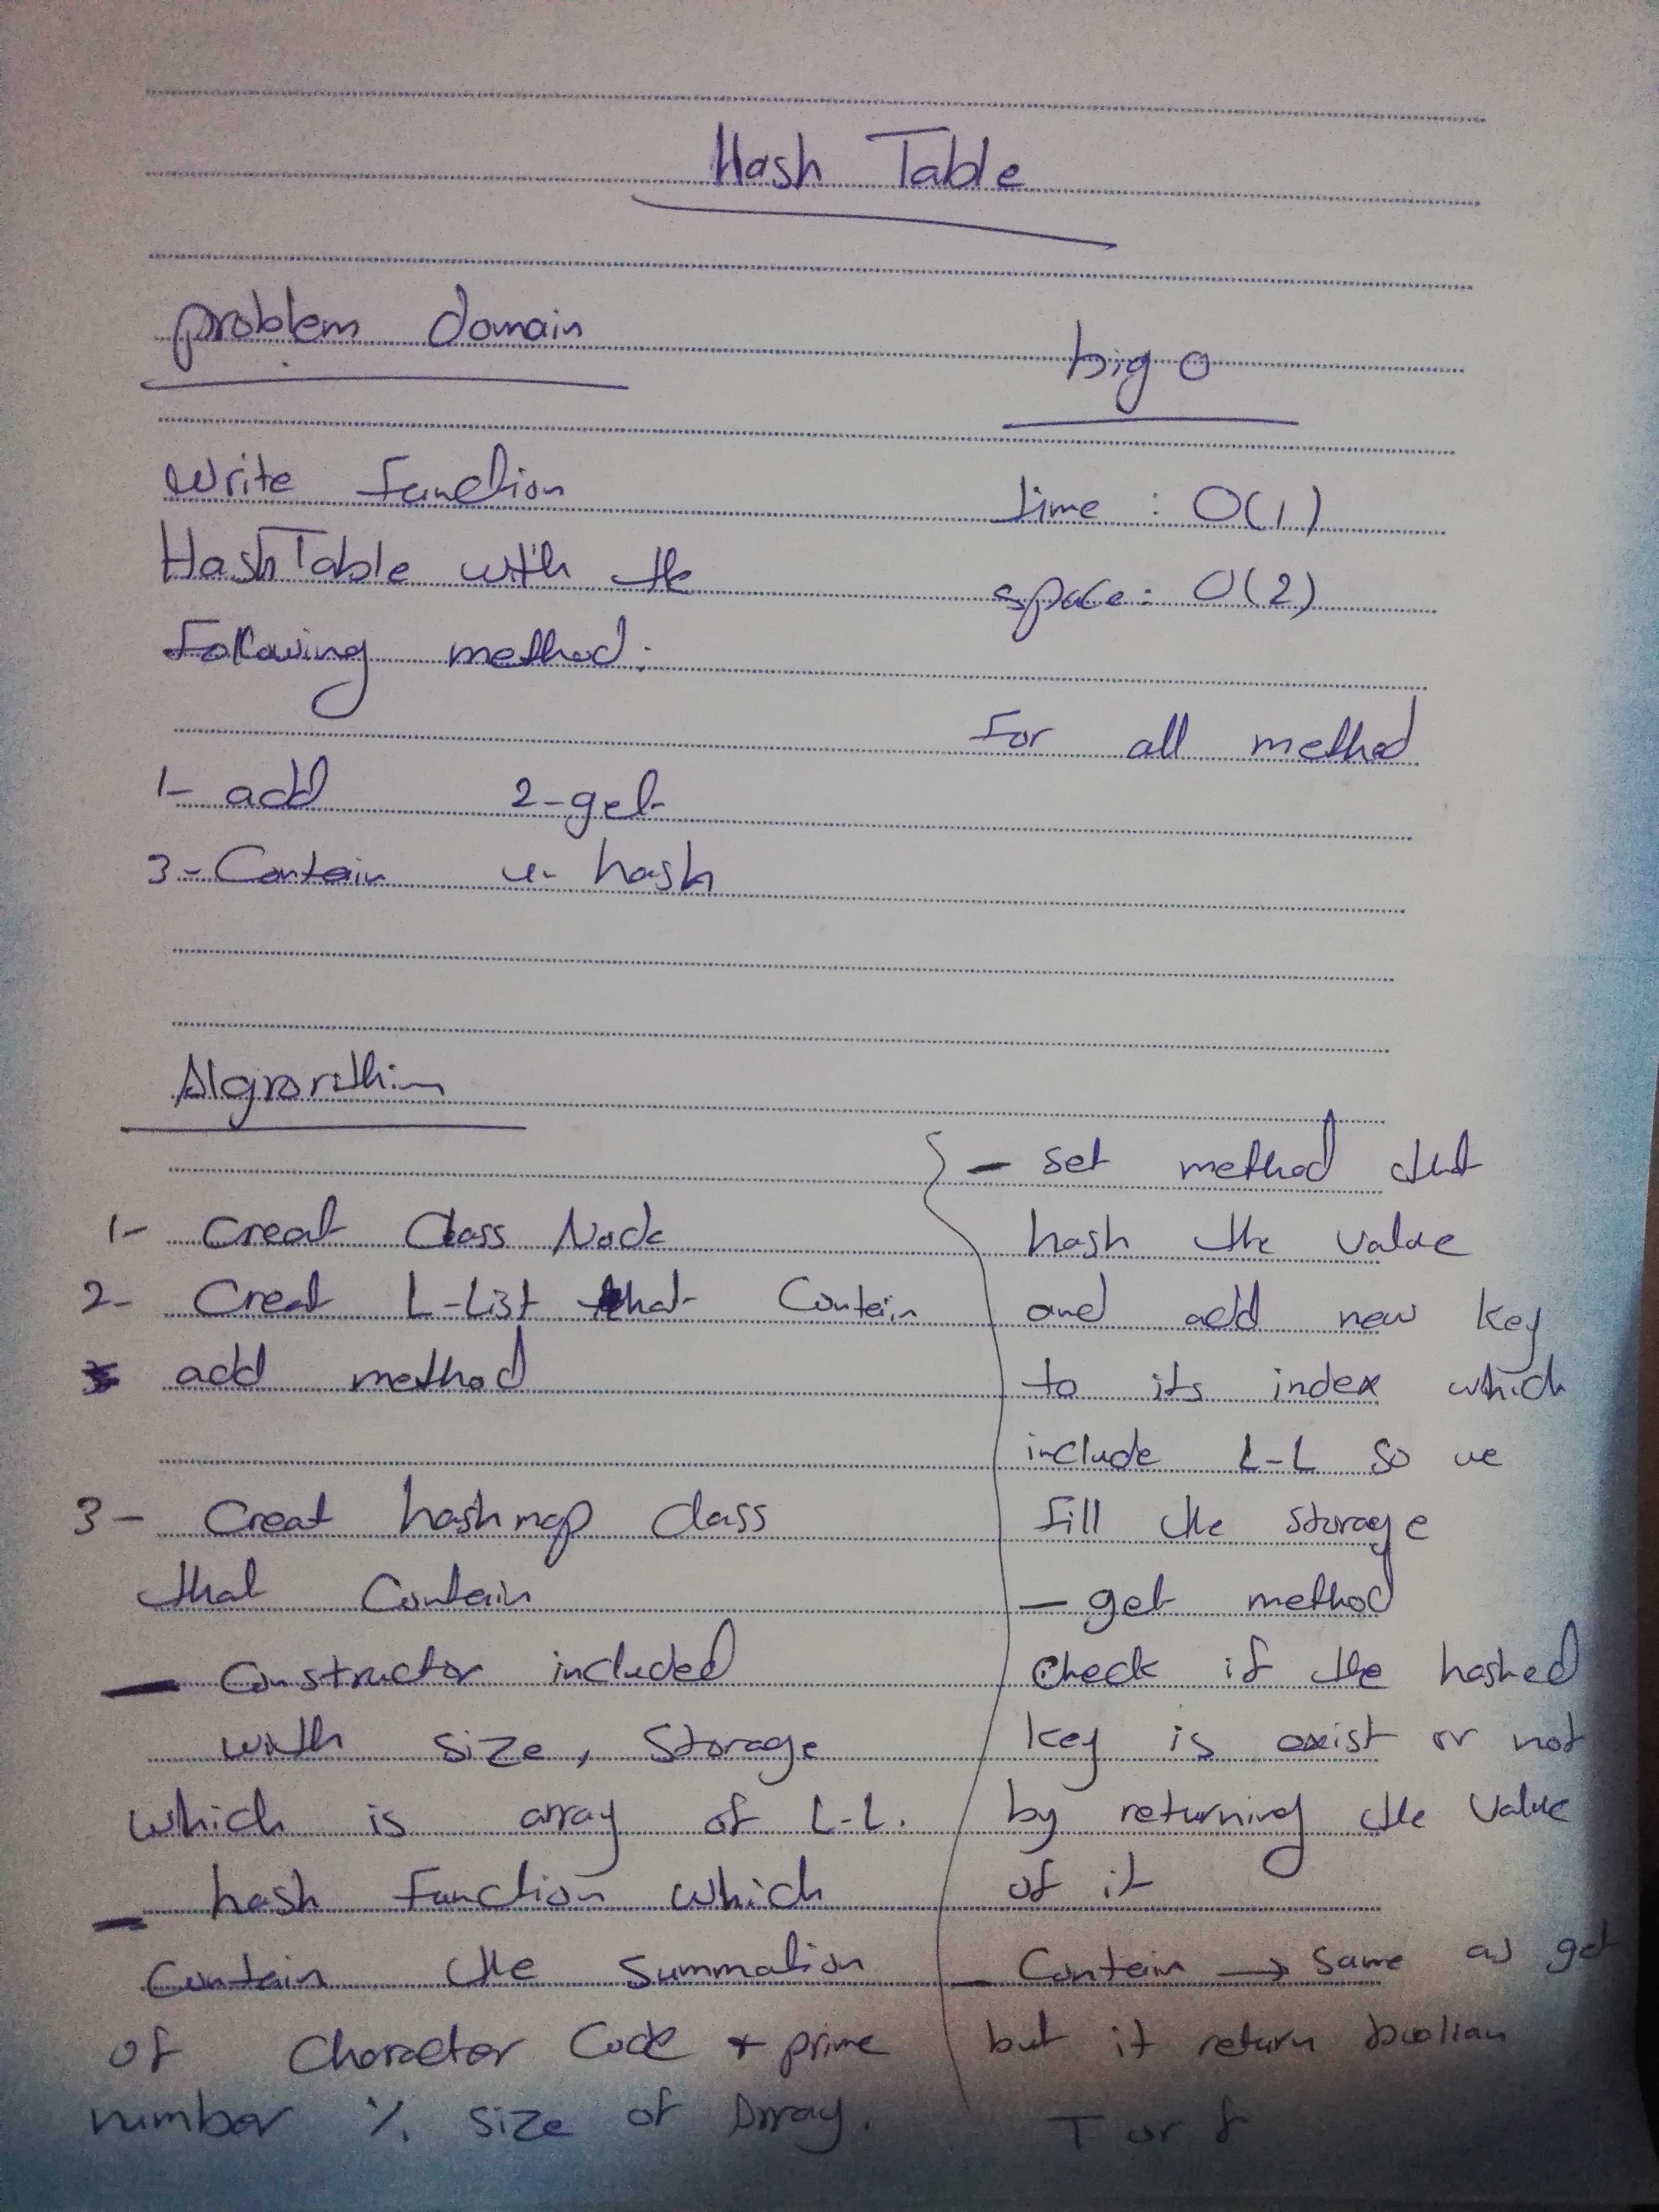 Hash Table
problem domain
Write function
HashTable with the
Following method:
1- add 2-get
3- Contain 4- hash
big O
time : O(1)
space : O(2)
For all method
Algrorithim
1- Creat Class Node
2- Creat L-List that Contain
add method
3- Creat hashmap class
that Contain
- Constructor included
with size, Storage
which is array of L-L.
- hash function which
Contain the summation
of Character Code * prime
number % size of Array.
- set method that
hash the value
and add new key
to its index which
include L-L so we
fill the storage
- get method
check if the hashed
key is exist or not
by returning the value
of it
- Contain → same as get
but it return boolian
T or f